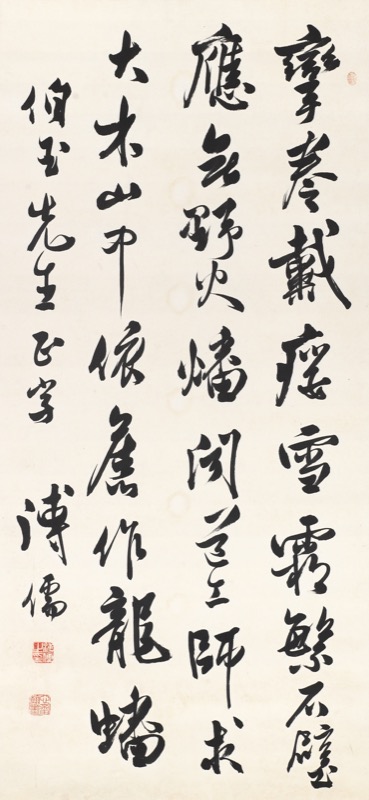 攣拳戴癭雪霜繁石壁
應無野火燔聞道工師求
大木山中依舊作龍蟠
伯玉先生正字
溥儒